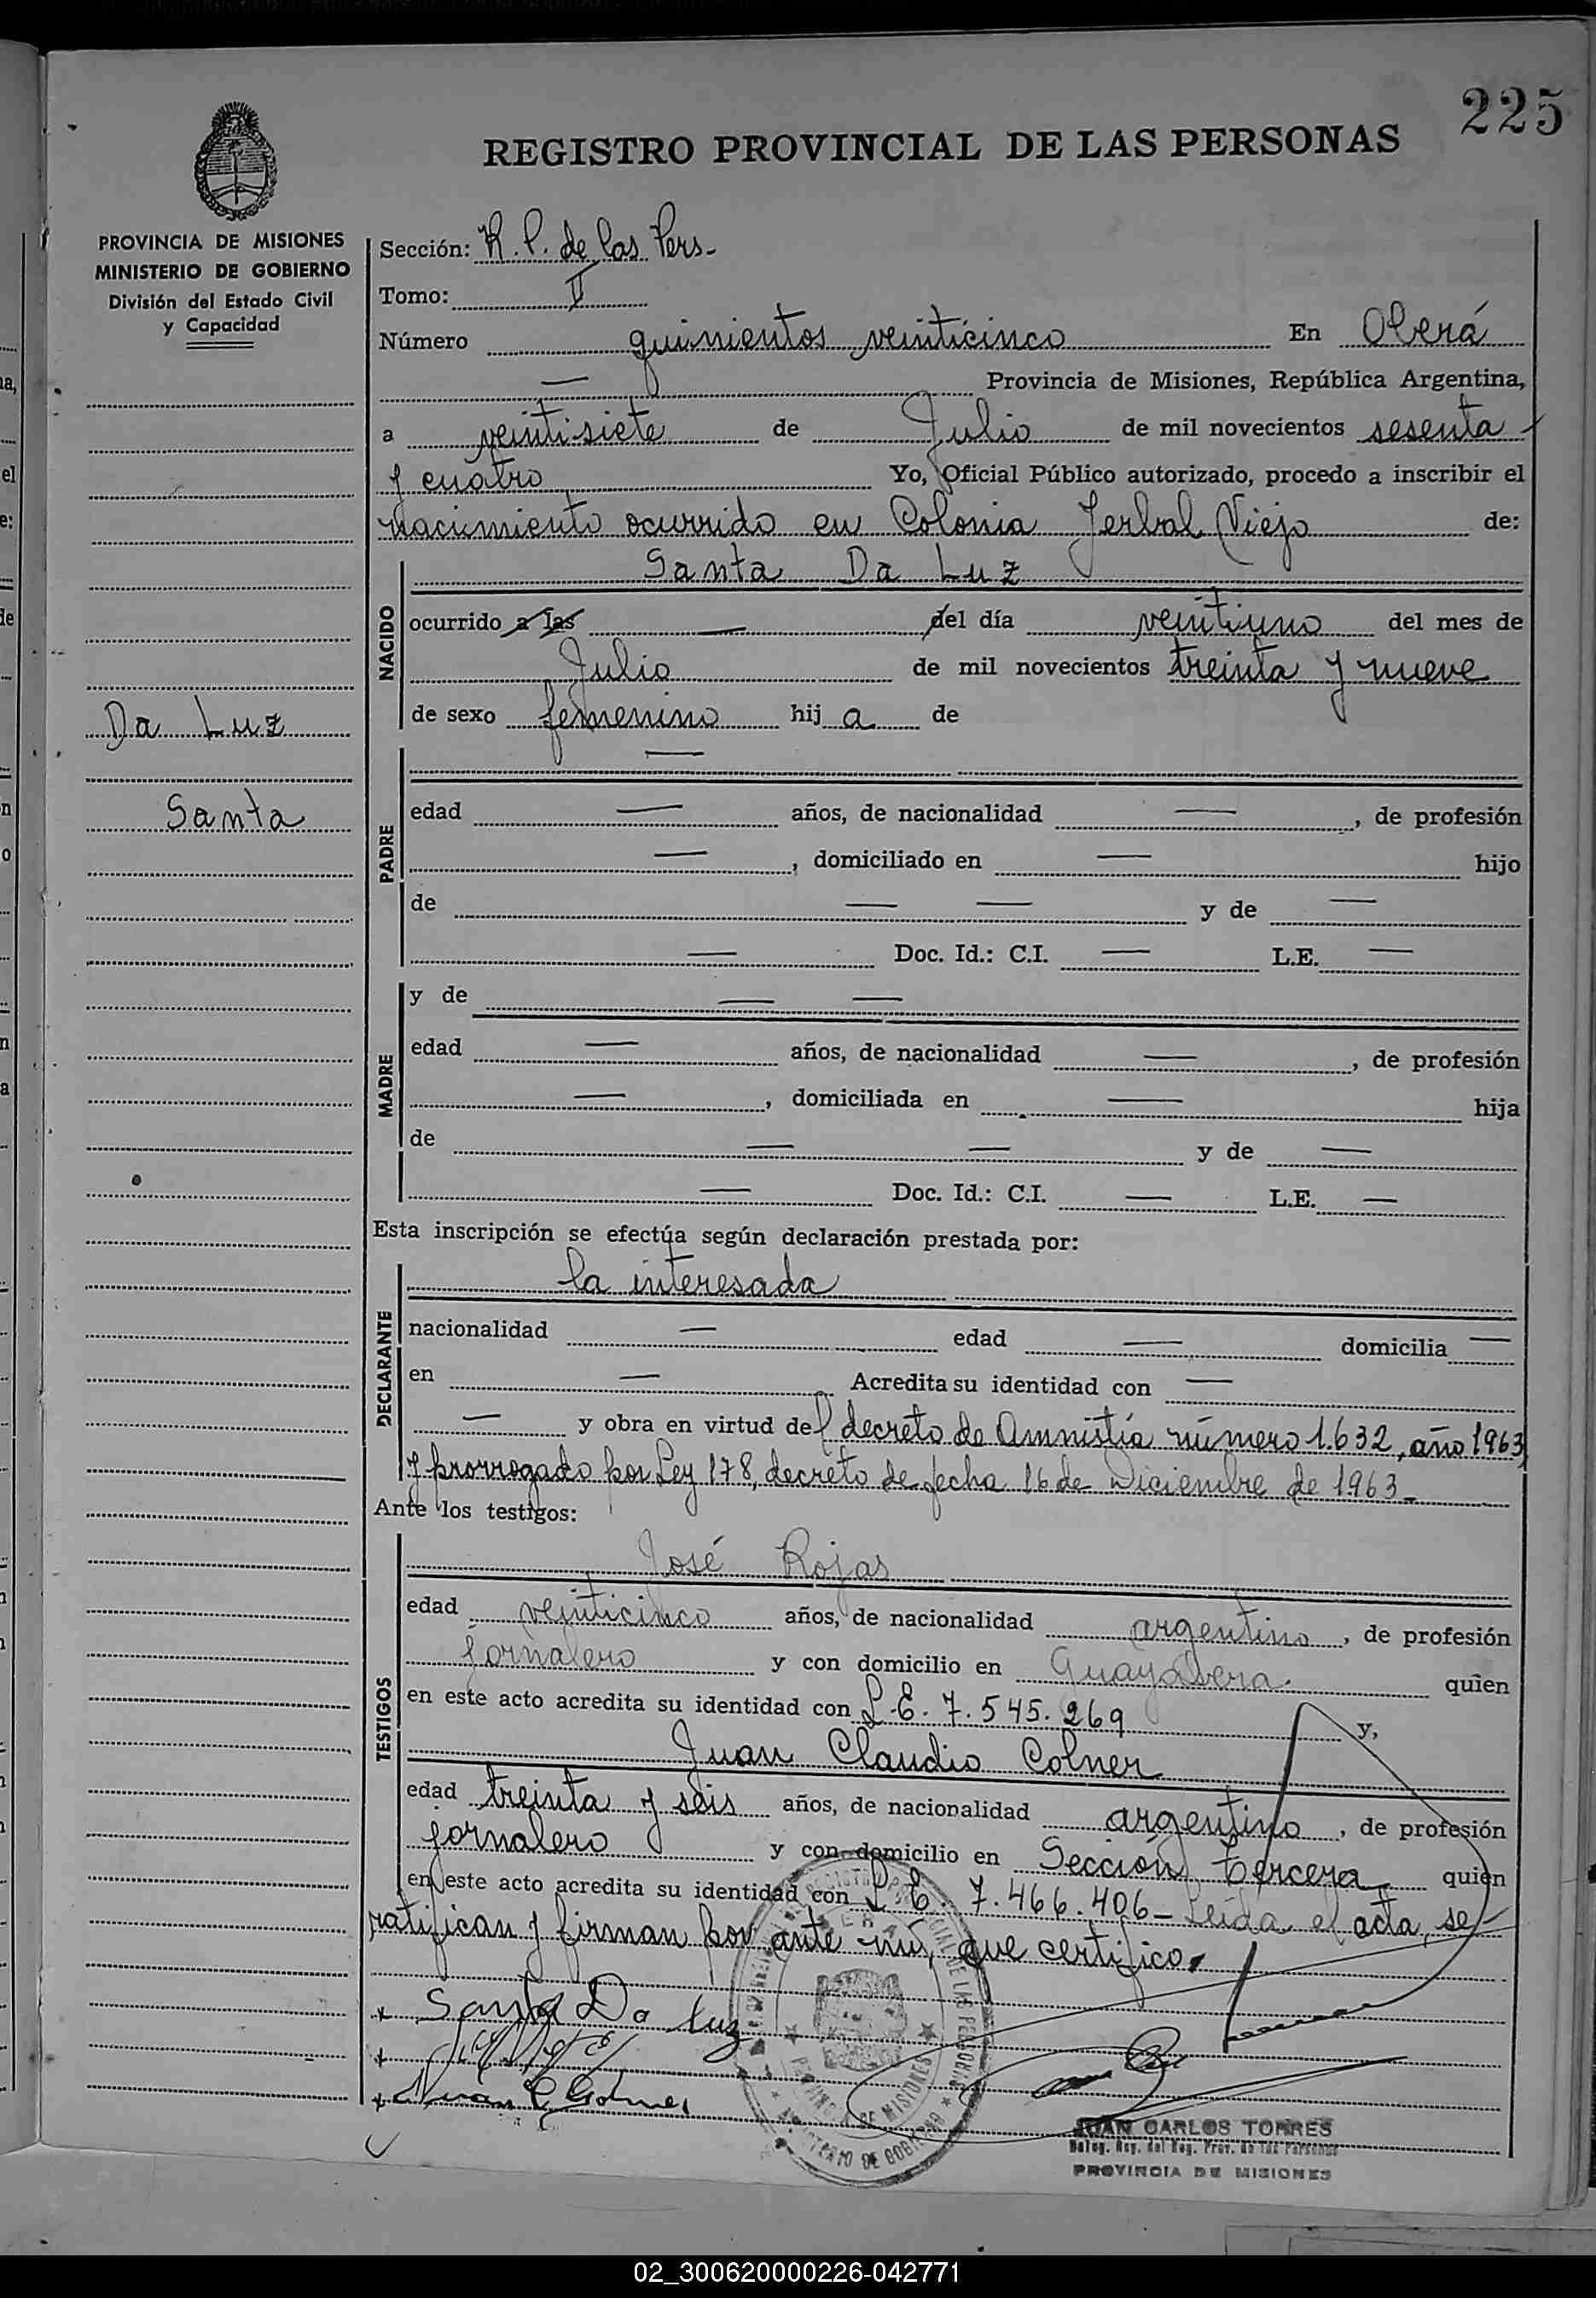 225
REGISTRO PROVINCIAL DE LAS PERSONAS
PROVINCIA DE MISIONES
MINISTERIO DE GOBIERNO
División del Estado Civil
y Capacidad
Da Luz
Santa
Sección: R. P. de las Pers-
Tomo: II
Número quinientos veinticinco En Oberá
— Provincia de Misiones, República Argentina,
a veintisiete de Julio de mil novecientos sesenta
y cuatro Yo, Oficial Público autorizado, procedo a inscribir el
nacimiento ocurrido en Colonia Yerbal Viejo de:
NACIDO
Santa Da Luz
ocurrido a las — del día veintiuno del mes de
Julio de mil novecientos treinta y nueve
de sexo femenino hij a de
PADRE
—
edad — años, de nacionalidad —, de profesión
—, domiciliado en — hijo
de — — y de —
— Doc. Id.: C.I. — L.E. —
MADRE
y de — —
edad — años, de nacionalidad —, de profesión
—, domiciliada en — hija
de — — y de —
— Doc. Id.: C.I. — L.E. —
Esta inscripción se efectúa según declaración prestada por:
DECLARANTE
la interesada
nacionalidad — edad — domicilia —
en — Acredita su identidad con —
— y obra en virtud del decreto de Amnistía número 1.632, año 1963
y prorrogado por Ley 178, decreto de fecha 16 de Diciembre de 1963-
Ante los testigos:
TESTIGOS
José Rojas
edad veinticinco años, de nacionalidad argentino, de profesión
jornalero y con domicilio en Guayabera. quien
en este acto acredita su identidad con L.E. 7.545.269 y,
Juan Claudio Colner
edad treinta y seis años, de nacionalidad argentino, de profesión
jornalero y con domicilio en Sección tercera quien
en este acto acredita su identidad con L.E. 7.466.406- Leída el acta, se
ratifican y firman por ante mí, que certifico.
x Santa Da Luz
x
x Juan C Colner
PROVINCIA DE MISIONES
MINISTERIO DE GOBIERNO
JUAN CARLOS TORRES
PROVINCIA DE MISIONES
02_300620000226-042771